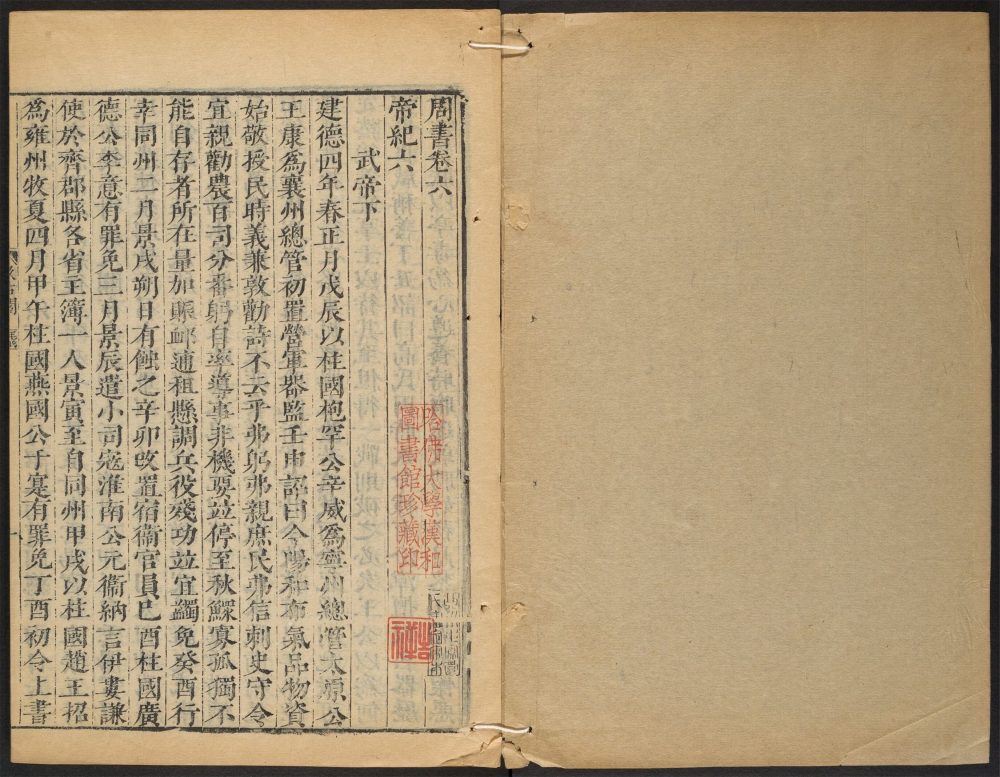 周書卷六
帝紀六
武帝下
建德四年春正月戊辰以柱國枹罕公辛威爲寧州總管太原公
王康爲襄州總管初置營軍器監壬申詔曰今陽和布氣品物資
始敬授民時義兼敦勸詩不云乎弗躬弗親庶民弗信刺史守令
宜親勸農百司分番躬自率導事非機要並停至秋鰥寡孤獨不
能自存者所在量加賑䘏逋租懸調兵役殘功並宜蠲免癸酉行
幸同州二月景戌朔日有蝕之辛卯改置宿衞官員己酉柱國廣
德公李意有罪免三月景辰遣小司寇淮南公元衞納言伊婁謙
使於齊郡縣各省主簿一人景寅至自同州甲戌以柱國趙王招
爲雍州牧夏四月甲午柱國燕國公于寔有罪免丁酉初令上書
哈佛大學漢和
圖書館珍藏印